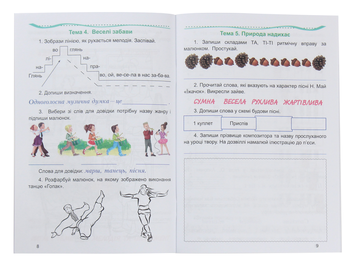 Тема 4. Веселі забави
1. Зобрази лінією, як рухається мелодія. Заспівай.
Глянь
на-
пра-
Глянь
во, ой, ве-се-ла в нас за-ба-ва.
2. Допиши визначення.
Одноголосна музична думка – це
3. Вибери зі слів для довідки потрібну назву жанру і підпиши малюнок.
Слова для довідки: марш, танець, пісня.
4. Розфарбуй малюнок, на якому зображено виконання танцю «Гопак».
8
Тема 5. Природа надихає
1. Запиши складами ТА, ТІ-ТІ ритмічну вправу за малюнком. Простукай.
2. Прочитай слова, які вказують на характер пісні Н. Май
Викресли зайве.
СУМНА ВЕСЕЛА РУХЛИВА ЖАРТІВЛИВА
3. Допиши слова у схемі будови пісні.
1 куплет
Приспів
4. Запиши прізвище композитора та назву прослуханого на уроці твору. На дозвіллі намалюй ілюстрацію до п'єси.
9